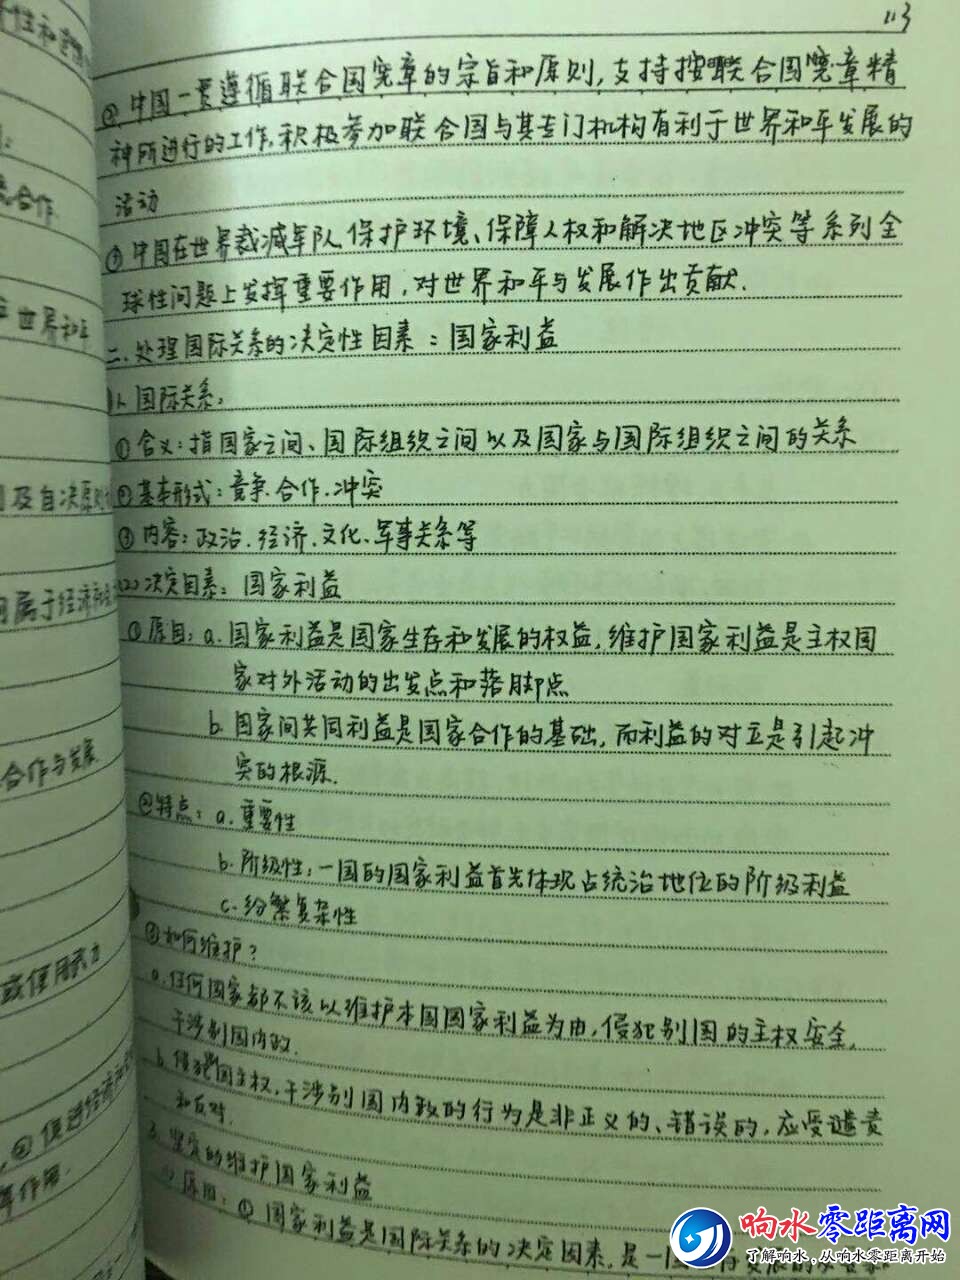 113
② 中国一贯遵循联合国宪章的宗旨和原则,支持按联合国宪章精
神所进行的工作,积极参加联合国与其专门机构有利于世界和平发展的
活动
③ 中国在世界裁减军队、保护环境、保障人权和解决地区冲突等系列全
球性问题上发挥重要作用,对世界和平与发展作出贡献.
二、处理国际关系的决定性因素:国家利益
1、国际关系:
① 含义:指国家之间、国际组织之间以及国家与国际组织之间的关系
② 基本形式:竞争、合作、冲突
③ 内容:政治、经济、文化、军事关系等
(2) 决定因素:国家利益
① 原因:a. 国家利益是国家生存和发展的权益,维护国家利益是主权国
家对外活动的出发点和落脚点
b. 国家间共同利益是国家合作的基础,而利益的对立是引起冲
突的根源.
② 特点:a. 重要性
b. 阶级性:一国的国家利益首先体现占统治地位的阶级利益
c. 纷繁复杂性
③ 如何维护?
a. 任何国家都不该以维护本国国家利益为由,侵犯别国的主权安全,
干涉别国内政.
b. 侵犯别国主权,干涉别国内政的行为是非正义的、错误的,应受谴责
和反对.
3. 坚定的维护国家利益
原因:① 国家利益是国际关系的决定因素,是一
性和
合作
世界和平
及自决原则
属于经济
合作与发展
或使用武力
② 促进经济
作用.
响水零距离网
了解响水,从响水零距离开始